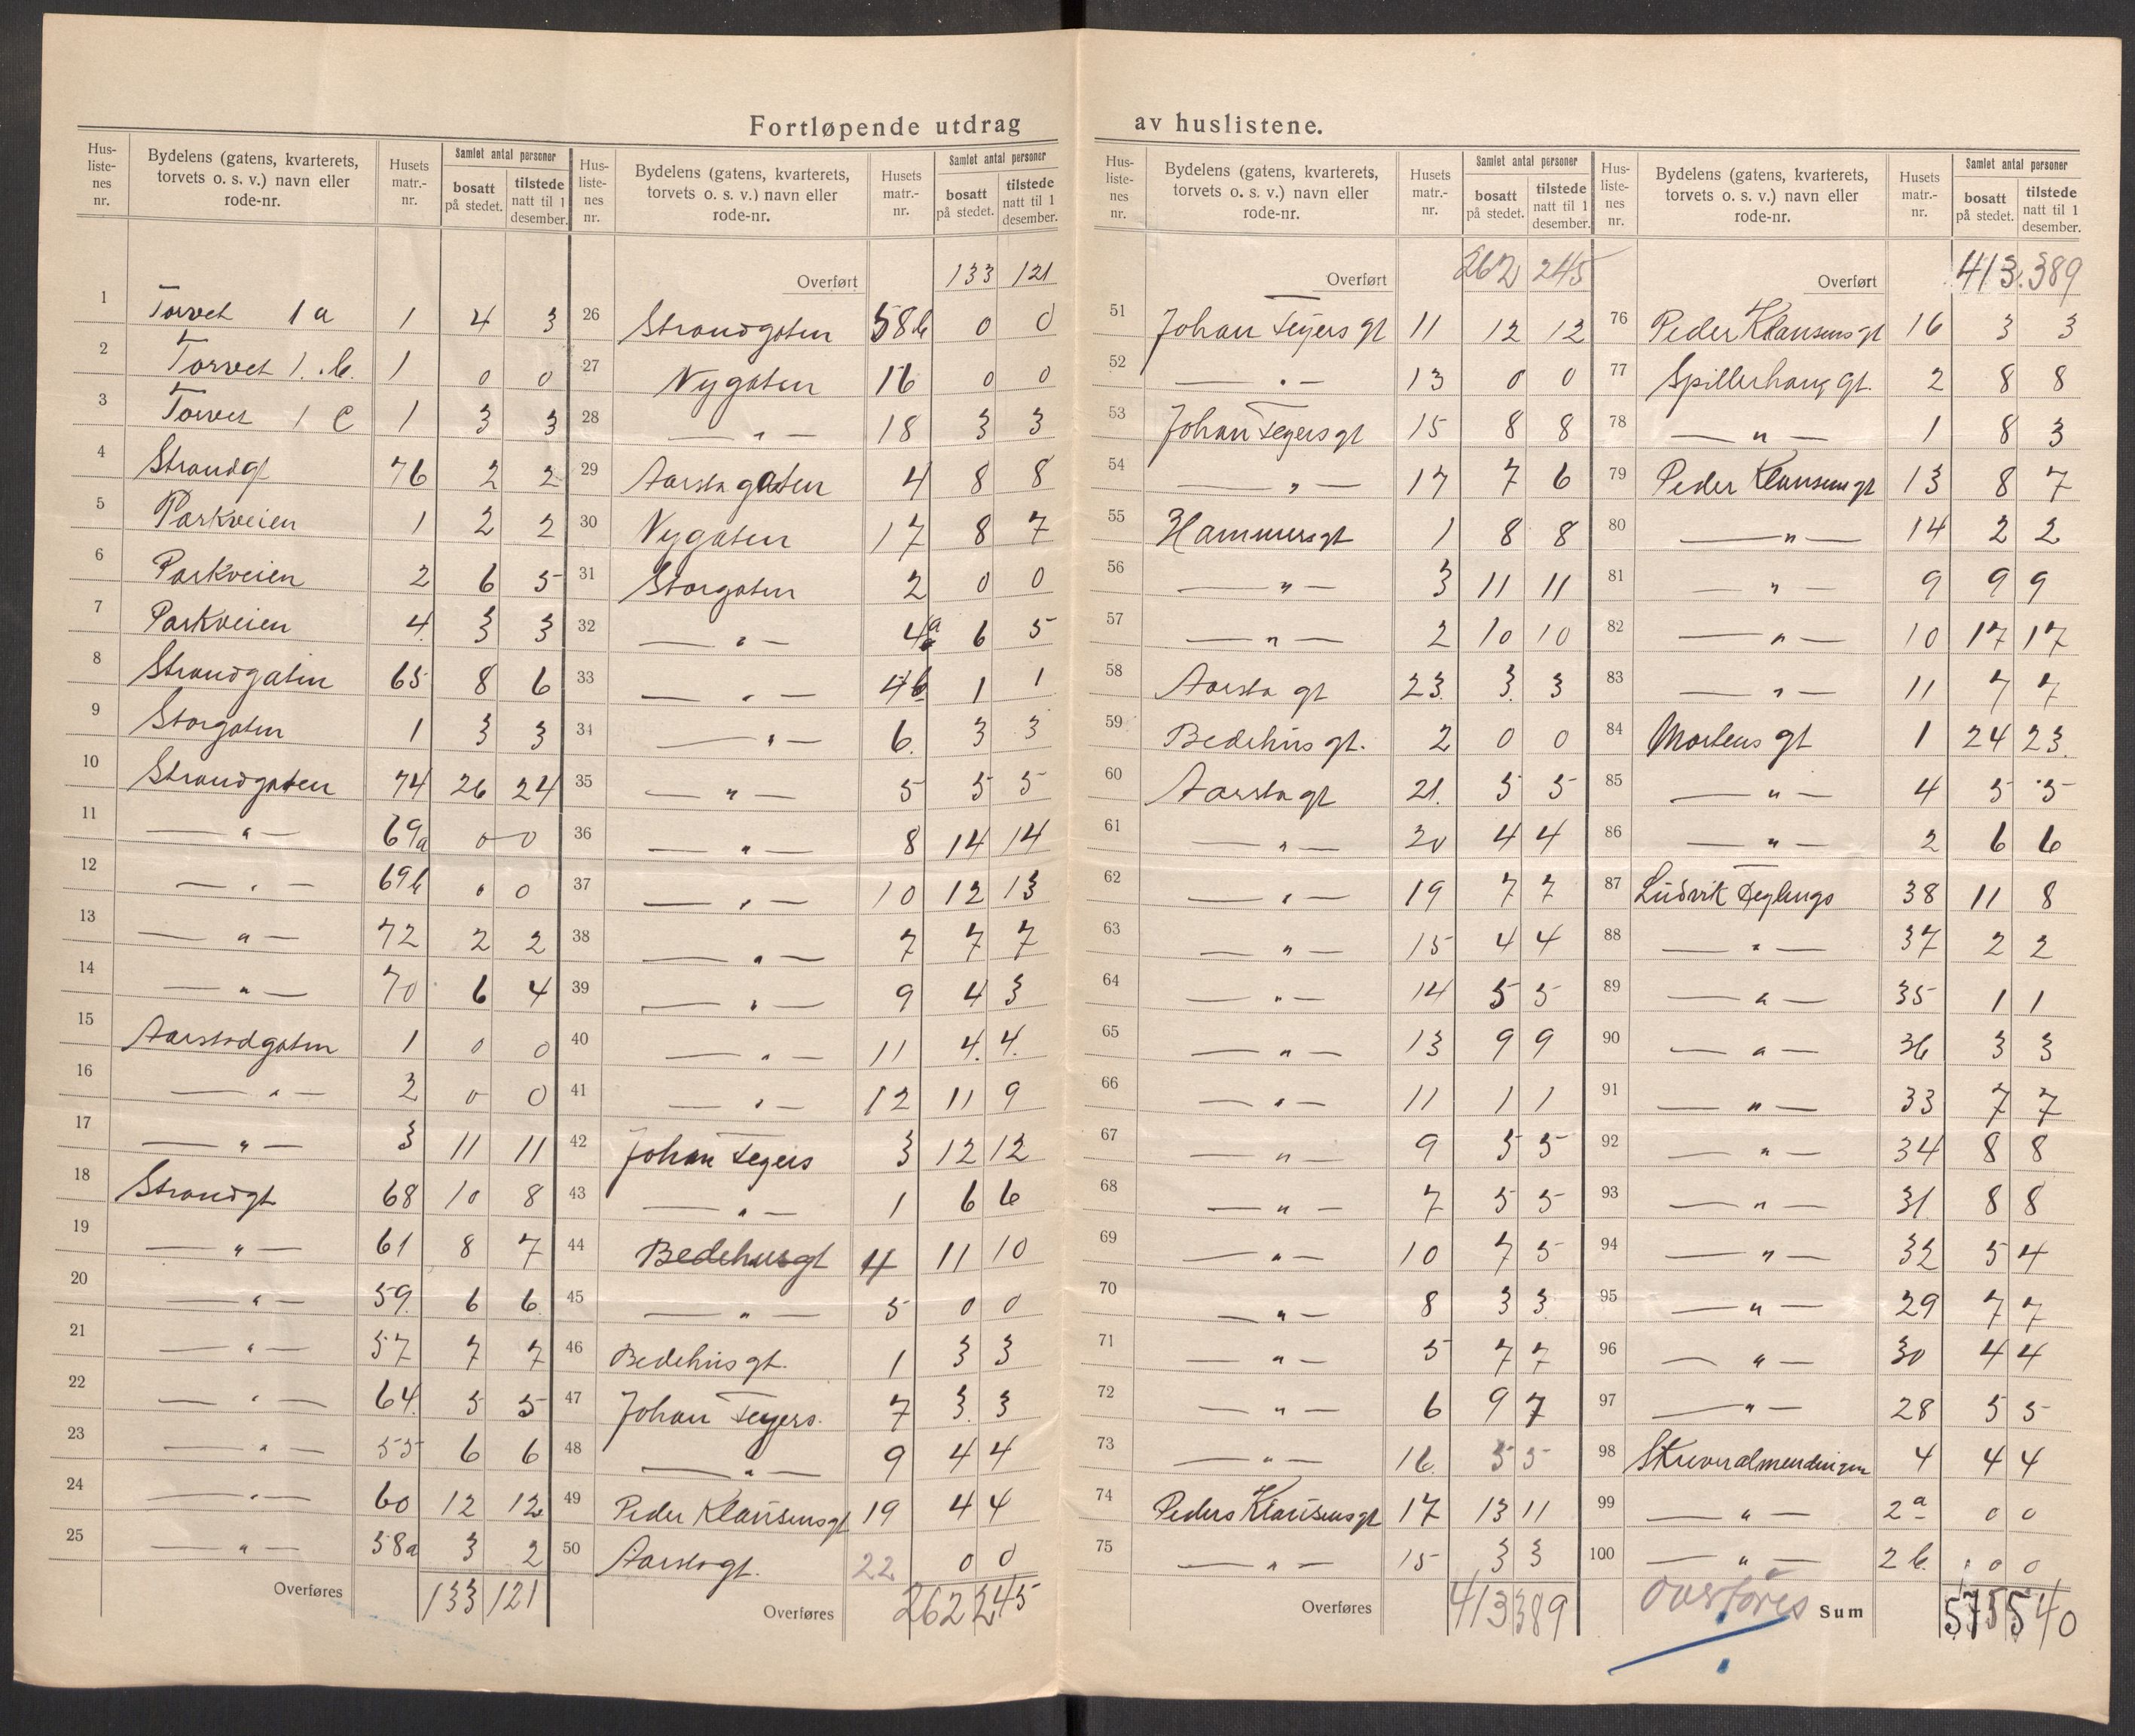 Fortløpende utdrag av huslistene.
Hus-liste-nes nr. | Bydelens (gatens, kvarterets, torvets o. s. v.) navn eller rode-nr. | Husets matr.-nr. | Samlet antal personer bosatt på stedet. | tilstede natt til 1 desember.
1 Torvet 1 a 1 4 3
2 Torvet 1. b. 1 0 0
3 Torvet 1 c 1 3 3
4 Strandgt 76 2 2
5 Parkveien 1 2 2
6 Parkveien 2 6 5
7 Parkveien 4. 3 3
8 Strandgaten 65 8 6
9 Storgaten 1 3 3
10 Strandgaten 74 26 24
11 — " — 69a 0 0
12 — " — 69b 0 0
13 — " — 72 2 2
14 — " — 70 6 4
15 Aarstadgaten 1 0 0
16 — " — 2 0 0
17 — " — 3 11 11
18 Strandgt 68 10 8
19 — " — 61 8 7
20 — " — 59. 6 6.
21 — " — 57 7 7
22 — " — 64. 5 5
23 — " — 55 6 6
24 — " — 60 12 12
25 — " — 58a 3 2
Overføres 133 121
Hus-liste-nes nr. | Bydelens (gatens, kvarterets, torvets o. s. v.) navn eller rode-nr. | Husets matr.-nr. | Samlet antal personer bosatt på stedet. | tilstede natt til 1 desember.
Overført 133 121
26 Strandgaten 58b 0 0
27 Nygaten 16 0 0
28 — " — 18 3 3
29 Aarstagaten 4 8 8
30 Nygaten 17 8 7
31 Storgaten 2 0 0
32 — " — 4a 6 5
33 — " — 4b 1 1
34 — " — 6. 3 3
35 — " — 5 5 5
36 — " — 8 14 14
37 — " — 10 12 13
38 — " — 7 7 7
39 — " — 9 4 3
40 — " — 11 4. 4.
41 — " — 12 11 9
42 Johan Feyers 3 12 12
43 — " — 1 6 6
44 Bedehusgt 4 11 10
45 — " — 5 0 0
46 Bedehusgt. 1 3 3
47 Johan Feyers. 7 3. 3
48 — " — 9 4 4
49 Peder Klausensgt 19 4 4
50 Aarstagt. 22 0 0
Overføres 262 245
Hus-liste-nes nr. | Bydelens (gatens, kvarterets, torvets o. s. v.) navn eller rode-nr. | Husets matr.-nr. | Samlet antal personer bosatt på stedet. | tilstede natt til 1 desember.
Overført 262 245
51 Johan Feyers gt 11 12 12
52 — " — 13 0 0
53 Johan Feyersgt 15 8 8
54 — " — 17 7 6
55 Hammersgt 1 8 8
56 — " — 3 11 11
57 — " — 2 10 10
58 Aarsta gt 23. 3. 3
59 Bedehus gt. 2 0 0
60 Aarstagt 21. 5 5
61 — " — 20 4 4
62 — " — 19 7 7
63 — " — 15 4 4
64 — " — 14 5 5
65 — " — 13 9 9
66 — " — 11 1 1
67 — " — 9 5 5
68 — " — 7 5 5
69 — " — 10 7 5
70 — " — 8 3 3
71 — " — 5 7 7
72 — " — 6 9 7
73 — " — 16. 5 5
74 Peders Klausensgt 17 13 11
75 — " — 15 3 3
Overføres 413 389
Hus-liste-nes nr. | Bydelens (gatens, kvarterets, torvets o. s. v.) navn eller rode-nr. | Husets matr.-nr. | Samlet antal personer bosatt på stedet. | tilstede natt til 1 desember.
Overført 413. 389
76 Peder Klausensgt 16 3 3
77 Spillerhauggt. 2 8 8
78 — " — 1 8 3
79 Peder Klausensgt 13 8 7
80 — " — 14 2 2
81 — " — 9 9 9
82 — " — 10 17 17
83 — " — 11 7 7
84 Mortens gt 1 24 23.
85 — " — 4 5 5
86 — " — 2 6 6
87 Ludvik 38 11 8
88 — " — 37 2 2
89 — " — 35 1 1
90 — " — 36 3 3
91 — " — 33 7 7
92 — " — 34 8 8
93 — " — 31. 8 8
94 — " — 32 5 4
95 — " — 29 7 7
96 — " — 30 4 4
97 — " — 28 5 5
98 4 4 4
99 — " — 2a 0 0
100 — " — 2b. 0 0
overføres Sum 575 540